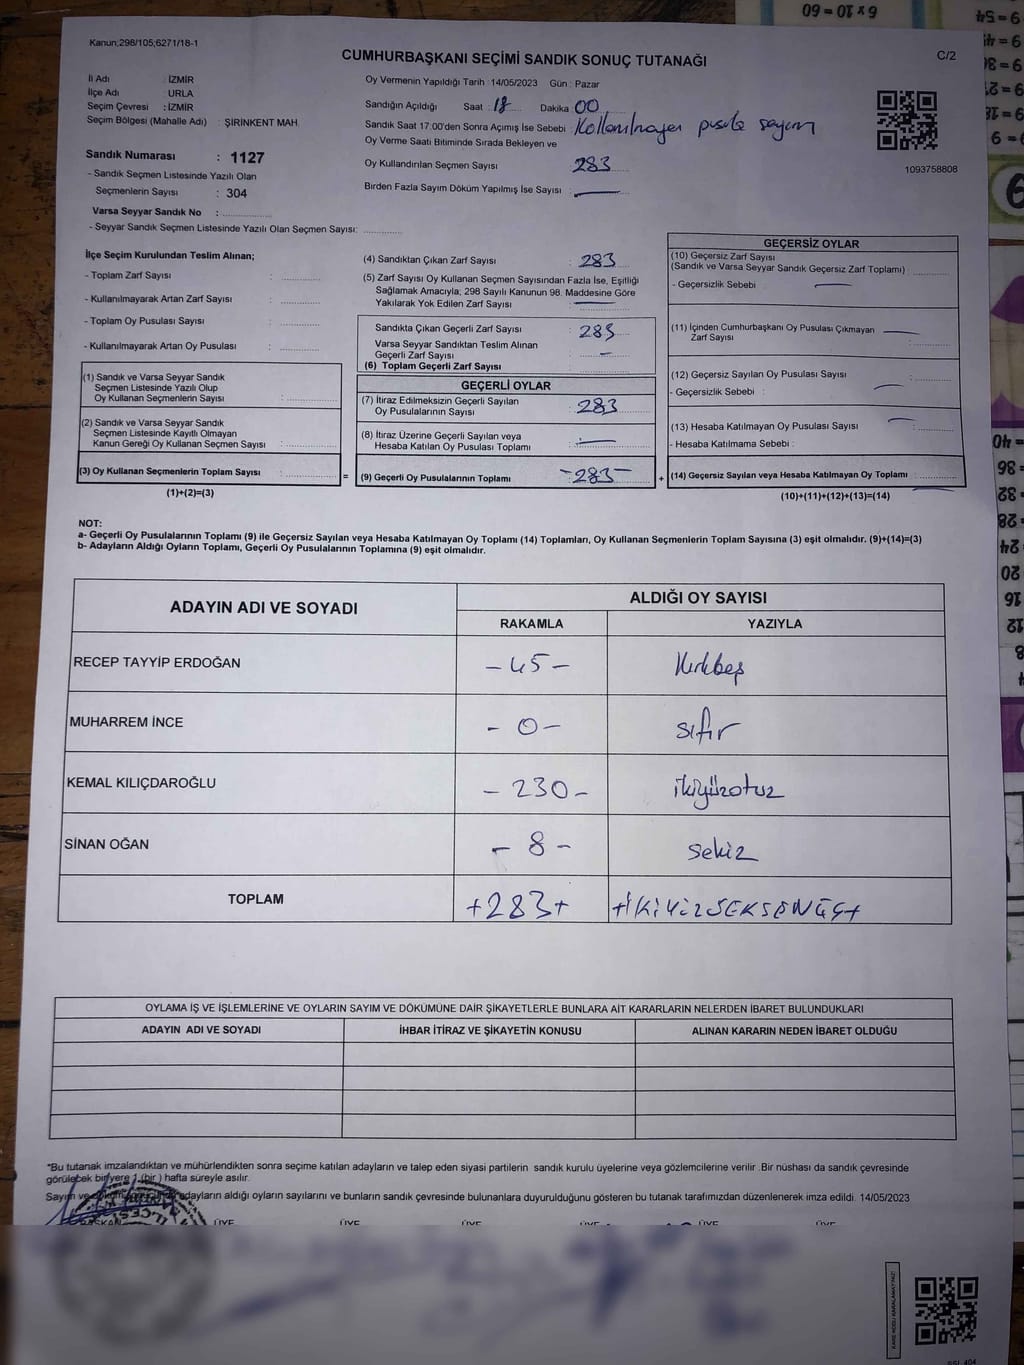 Kanun;298/105;6271/18-1
CUMHURBAŞKANI SEÇİMİ SANDIK SONUÇ TUTANAĞI
C/2
İl Adı : İZMİR
İlçe Adı : URLA
Seçim Çevresi : İZMİR
Seçim Bölgesi (Mahalle Adı) : ŞİRİNKENT MAH.
Sandık Numarası : 1127
- Sandık Seçmen Listesinde Yazılı Olan
Seçmenlerin Sayısı : 304
Varsa Seyyar Sandık No :
- Seyyar Sandık Seçmen Listesinde Yazılı Olan Seçmen Sayısı:
Oy Vermenin Yapıldığı Tarih :14/05/2023 Gün : Pazar
Sandığın Açıldığı Saat : 18 Dakika : 00
Sandık Saat 17:00'den Sonra Açımış İse Sebebi : Kollanılmayan pusula sayım
Oy Verme Saati Bitiminde Sırada Bekleyen ve
Oy Kullandırılan Seçmen Sayısı 283
Birden Fazla Sayım Döküm Yapılmış İse Sayısı :
1093758808
İlçe Seçim Kurulundan Teslim Alınan;
- Toplam Zarf Sayısı :
- Kullanılmayarak Artan Zarf Sayısı :
- Toplam Oy Pusulası Sayısı :
- Kullanılmayarak Artan Oy Pusulası :
(1) Sandık ve Varsa Seyyar Sandık
Seçmen Listesinde Yazılı Olup
Oy Kullanan Seçmenlerin Sayısı :
(2) Sandık ve Varsa Seyyar Sandık
Seçmen Listesinde Kayıtlı Olmayan
Kanun Gereği Oy Kullanan Seçmen Sayısı :
(3) Oy Kullanan Seçmenlerin Toplam Sayısı :
(1)+(2)=(3)
(4) Sandıktan Çıkan Zarf Sayısı : 283
(5) Zarf Sayısı Oy Kullanan Seçmen Sayısından Fazla İse, Eşitliği
Sağlamak Amacıyla; 298 Sayılı Kanunun 98. Maddesine Göre
Yakılarak Yok Edilen Zarf Sayısı :
Sandıkta Çıkan Geçerli Zarf Sayısı : 283
Varsa Seyyar Sandıktan Teslim Alınan
Geçerli Zarf Sayısı :
(6) Toplam Geçerli Zarf Sayısı
GEÇERLİ OYLAR
(7) İtiraz Edilmeksizin Geçerli Sayılan
Oy Pusulalarının Sayısı : 283
(8) İtiraz Üzerine Geçerli Sayılan veya
Hesaba Katılan Oy Pusulası Toplamı :
= (9) Geçerli Oy Pusulalarının Toplamı -283-
GEÇERSİZ OYLAR
(10) Geçersiz Zarf Sayısı
(Sandık ve Varsa Seyyar Sandık Geçersiz Zarf Toplamı)
- Geçersizlik Sebebi :
(11) İçinden Cumhurbaşkanı Oy Pusulası Çıkmayan
Zarf Sayısı :
(12) Geçersiz Sayılan Oy Pusulası Sayısı :
- Geçersizlik Sebebi :
(13) Hesaba Katılmayan Oy Pusulası Sayısı :
- Hesaba Katılmama Sebebi :
+ (14) Geçersiz Sayılan veya Hesaba Katılmayan Oy Toplamı :
(10)+(11)+(12)+(13)=(14)
NOT:
a- Geçerli Oy Pusulalarının Toplamı (9) ile Geçersiz Sayılan veya Hesaba Katılmayan Oy Toplamı (14) Toplamları, Oy Kullanan Seçmenlerin Toplam Sayısına (3) eşit olmalıdır. (9)+(14)=(3)
b- Adayların Aldığı Oyların Toplamı, Geçerli Oy Pusulalarının Toplamına (9) eşit olmalıdır.
ADAYIN ADI VE SOYADI
ALDIĞI OY SAYISI
RAKAMLA YAZIYLA
RECEP TAYYİP ERDOĞAN -45- Kırkbeş
MUHARREM İNCE -0- sıfır
KEMAL KILIÇDAROĞLU -230- ikiyüzotuz
SİNAN OĞAN -8- sekiz
TOPLAM +283+ +İKİYÜZSEKSENÜÇ+
OYLAMA İŞ VE İŞLEMLERİNE VE OYLARIN SAYIM VE DÖKÜMÜNE DAİR ŞİKAYETLERLE BUNLARA AİT KARARLARIN NELERDEN İBARET BULUNDUKLARI
ADAYIN ADI VE SOYADI İHBAR İTİRAZ VE ŞİKAYETİN KONUSU ALINAN KARARIN NEDEN İBARET OLDUĞU
*Bu tutanak imzalandıktan ve mühürlendikten sonra seçime katılan adayların ve talep eden siyasi partilerin sandık kurulu üyelerine veya gözlemcilerine verilir .Bir nüshası da sandık çevresinde
görülecek bir yere 1 (bir ) hafta süreyle asılır.
Sayım ve adayların aldığı oyların sayılarını ve bunların sandık çevresinde bulunanlara duyurulduğunu gösteren bu tutanak tarafımızdan düzenlenerek imza edildi. 14/05/2023
BAŞKAN ÜYE ÜYE ÜYE ÜYE ÜYE ÜYE